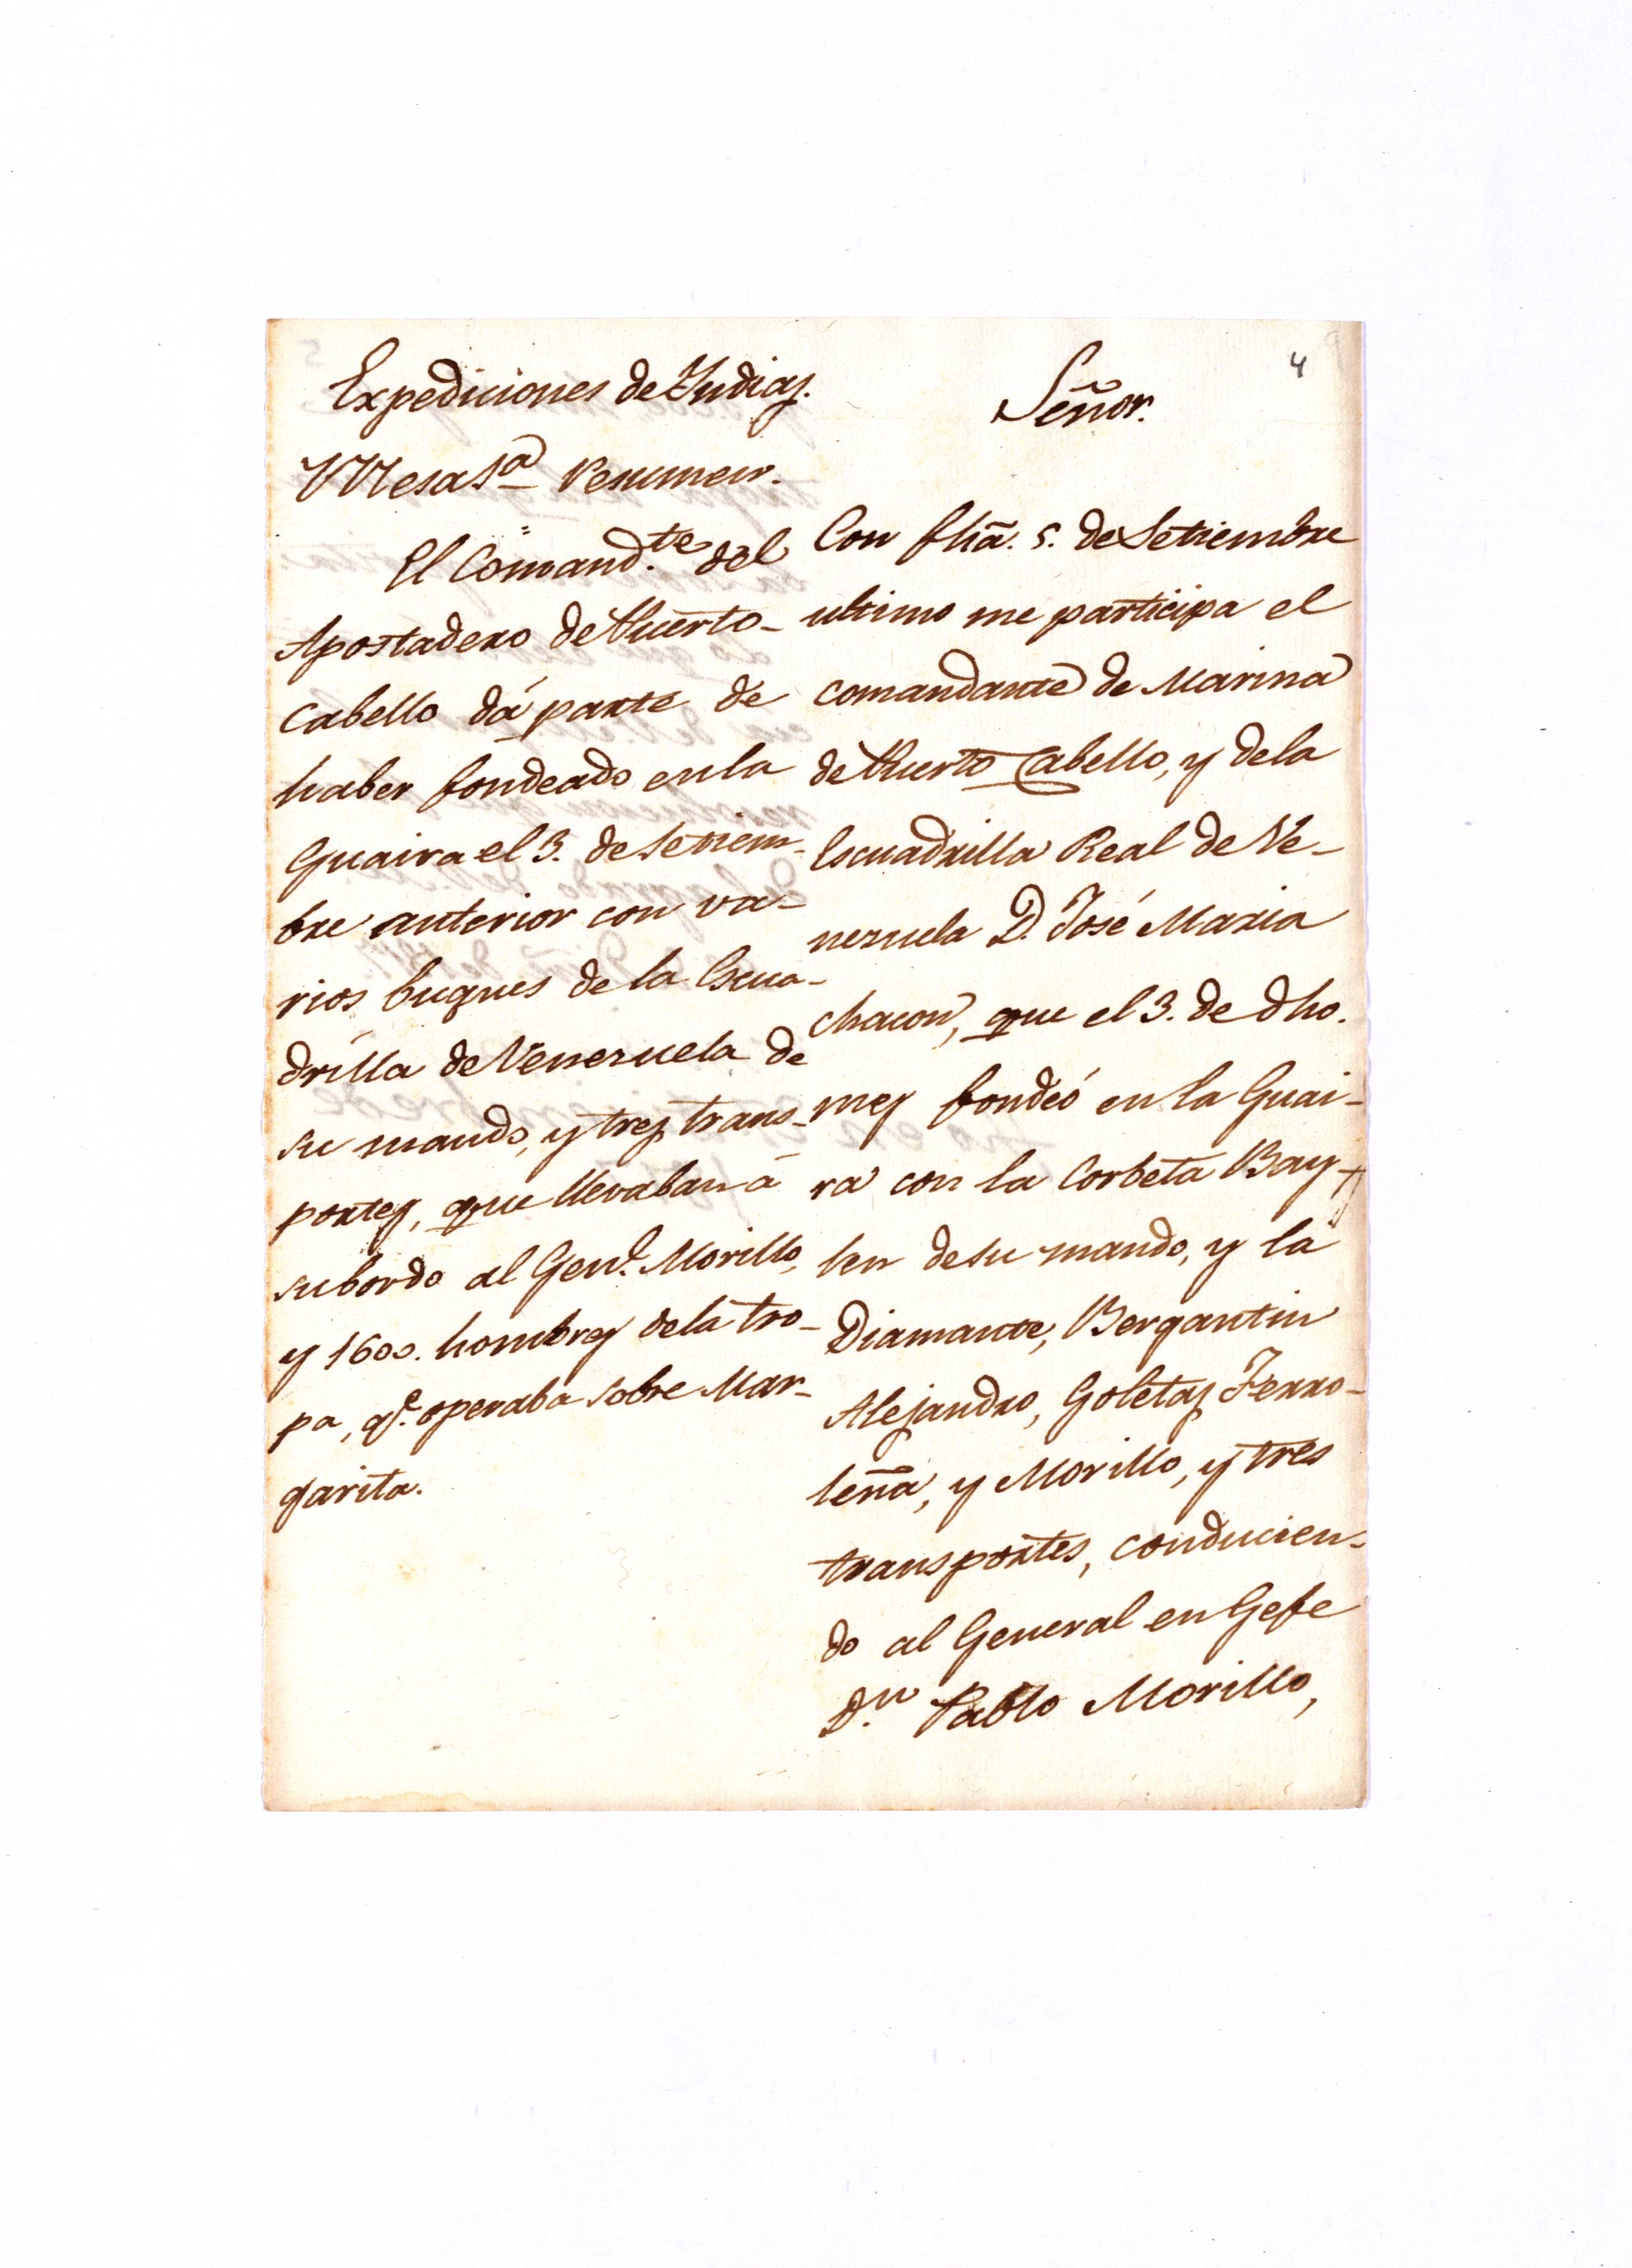 4
Expediciones de Yndias.
Mesa 1ª Resumen.
El Comand.te del
Apostadero de Puerto-
Cabello dá parte de
haber fondeado en la
Guaira el 3. de Setiem-
bre anterior con va-
rios buques de la Escua-
drilla de Venezuela de
su mando, y tres trans-
portes, que llevaban á
su bordo al Gen.l Morillo,
y 1600. hombres de la tro-
pa, q.e operaba sobre Mar-
garita.
Señor.
Con fhã. 5. de Setiembre
ultimo me participa el
comandante de Marina
de Puerto Cabello, y de la
Escuadrilla Real de Ve-
nezuela D. José Maria
Chacon, que el 3. de dho.
mes fondeó en la Guai-
ra con la Corbeta Bay-
len de su mando, y la
Diamante, Bergantin
Alejandro, Goletas Ferro-
leña, y Morillo, y tres
transportes, conducien-
do al General en Gefe
D.n Pablo Morillo,